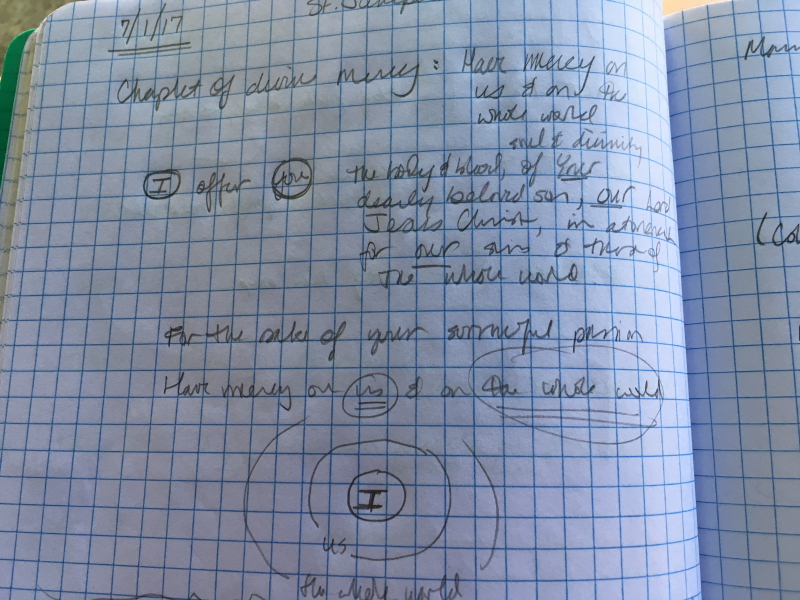 7/1/17
St.
Chaplet of divine mercy: Have mercy on
us & on the
whole world
soul & divinity
I offer you the body & blood, of your
dearly beloved son, our Lord
Jesus Christ, in atonement
for our sins & those of
the whole world.
For the sake of your sorrowful passion
Have mercy on us & on the whole world
I
us
the whole world